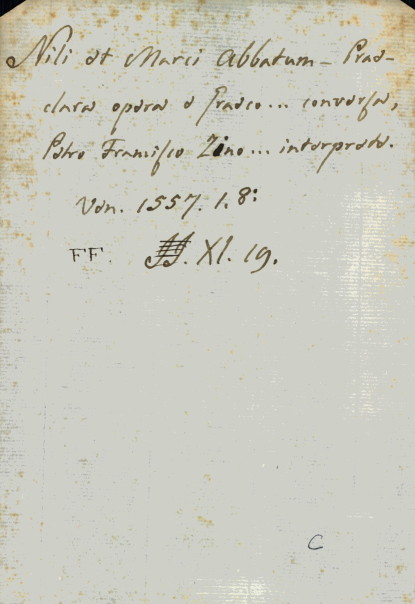 Nili et Marci Abbatum - Prae-
clara opera e Graeco... conversa,
Petro Francisco Zino... interprete.
Ven. 1557. 1. 8:
FF. XI. 19.
C